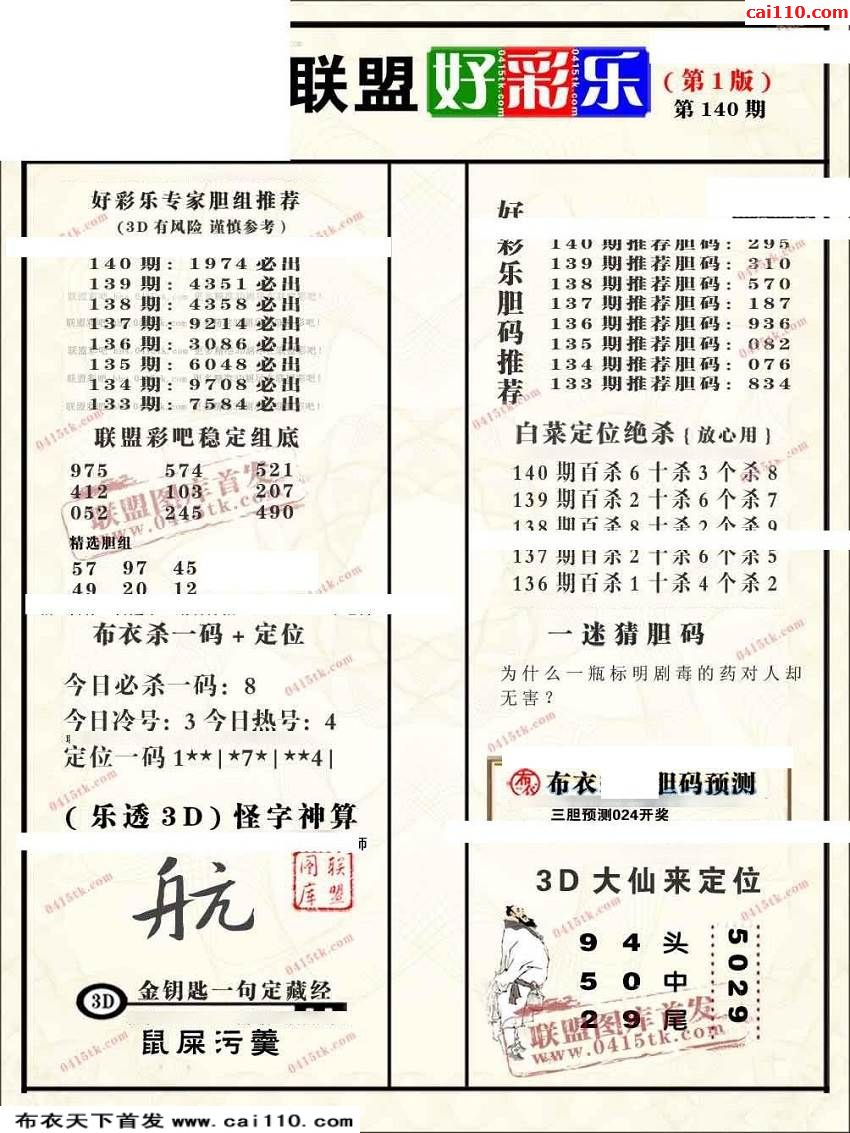 cai110.com
联盟 好彩乐
0415tk.com 0415tk.com 0415tk.com
(第1版)
第140期
好彩乐专家胆组推荐
(3D有风险 谨慎参考)
140期：1974必出
139期：4351必出
138期：4358必出
137期：9214必出
136期：3086必出
135期：6048必出
134期：9708必出
133期：7584必出
联盟彩吧稳定组底
975 574 521
412 103 207
052 245 490
联盟图库首发
www.0415tk.com
精选胆组
57 97 45
49 20 12
布衣杀一码+定位
今日必杀一码：8
今日冷号：3 今日热号：4
定位一码1**|*7*|**4|
(乐透3D)怪字神算
师
航
联盟图库
3D 金钥匙一句定藏经
鼠屎污羹
好彩乐胆码推荐
140期推荐胆码：295
139期推荐胆码：310
138期推荐胆码：570
137期推荐胆码：187
136期推荐胆码：936
135期推荐胆码：082
134期推荐胆码：076
133期推荐胆码：834
白菜定位绝杀{放心用}
140期百杀6十杀3个杀8
139期百杀2十杀6个杀7
138期百杀8十杀2个杀9
137期百杀2十杀6个杀5
136期百杀1十杀4个杀2
一迷猜胆码
为什么一瓶标明剧毒的药对人却
无害？
布 布衣 胆码预测
三胆预测024开奖
3D大仙来定位
9 4 头
5 0 中
2 9 尾
5029
联盟图库首发
www.0415tk.com
布衣天下首发 www.cai110.com